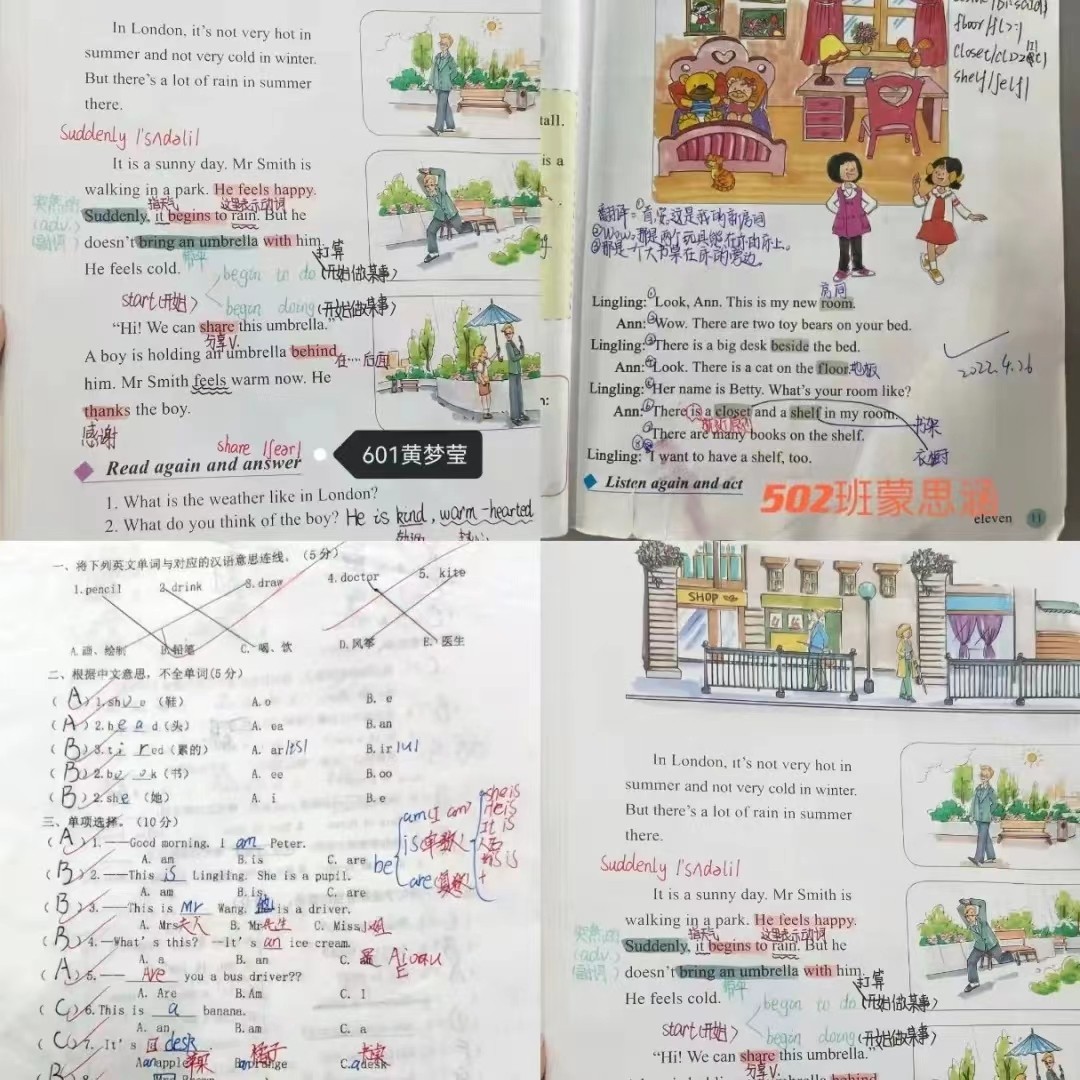 In London, it's not very hot in
summer and not very cold in winter.
But there's a lot of rain in summer
there.
Suddenly /'sʌdəli/
It is a sunny day. Mr Smith is
walking in a park. He feels happy.
指天气 这里表示动词
Suddenly, it begins to rain. But he
突然的
(adv.)
(副词)
doesn't bring an umbrella with him.
He feels cold.
began to do (开始做某事)
start(开始)
began doing (开始做某事)
"Hi! We can share this umbrella."
分享 V.
A boy is holding an umbrella behind
在…后面
him. Mr Smith feels warm now. He
thanks the boy.
感谢
share /ʃeər/
Read again and answer
601黄梦莹
1. What is the weather like in London?
2. What do you think of the boy? He is kind, warm-hearted
tall.
is a
floor/flɔ:/
shelf/ʃelf/
翻译:①看,安,这是我的新房间
②Wow,那是两个玩具熊在你的床上。
③那是一个大书桌在床的旁边。
房间
Lingling: ①Look, Ann. This is my new room.
Ann: ②Wow. There are two toy bears on your bed.
Lingling: ③There is a big desk beside the bed.
Ann: ④Look. There is a cat on the floor. 地板
Lingling: ⑤Her name is Betty. What's your room like?
Ann: ⑥There is a closet and a shelf in my room.
There are many books on the shelf.
书架
衣橱
Lingling: I want to have a shelf, too.
2022.4.26
Listen again and act
502班蒙思涵
eleven 11
一、将下列英文单词与对应的汉语意思连线。(5分)
1.pencil 2.drink 3.draw 4.doctor 5. kite
A.画、绘制 B.铅笔 C. 喝、饮 D.风筝 E. 医生
二、根据中文意思,不全单词(5分)
(A)1.sh o e (鞋) A.o B. e
(A)2.h e a d(头) A. ea B.an
(B)3.t i r ed(累的) A. ar B.ir
(B)2.b o o k(书) A. ee B.oo
(B)2.sh e (她) A. i B.e
三、单项选择。(10分)
(A)1.——Good morning. I am Peter.
A. am B.is C. are
(B)2.——This is Lingling. She is a pupil.
A. am B.is C. are
(B)3.——This is Mr Wang. 他 is a driver.
A. Mrs夫人 B. Mr先生 C. Miss小姐
(B)4.—What's this? --It's an ice cream.
A. a B. an C.
(A)5.—— Are you a bus driver??
A. Are B.Am C. I
(C)6.This is a banana.
A. an B.am C. a
(C)7. It's desk
苹果 橘子 桌
A.an apple B.an orange C.a desk
be
am(I am)
is(单数)
are(复数)
she is
He is
It is
SHOP
In London, it's not very hot in
summer and not very cold in winter.
But there's a lot of rain in summer
there.
Suddenly /'sʌdəli/
It is a sunny day. Mr Smith is
walking in a park. He feels happy.
指天气 这里表示动词
Suddenly, it begins to rain. But he
突然的
(adv.)
(副词)
doesn't bring an umbrella with him.
He feels cold.
began to do (开始做某事)
start(开始)
began doing (开始做某事)
"Hi! We can share this umbrella."
分享 V.